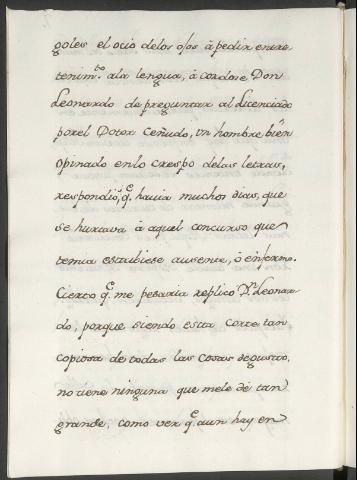 goles el ocio delos ojos á pedir entre
tenim.to ala lengua, á cordose Don
Leonardo de preguntar al Licenciado
porel Dotor Ceñudo, vn hombre bien
opinado enlo crespo delas letras,
respondió, q.e havia muchos dias, que
se hurtava á aquel concurso que
temia estubiese ausente, ó enfermo.
Cierto q.e me pesaria replicó D.n Leonar
do, porque siendo esta corte tan
copiosa de todas las cosas de gusto,
no tiene ninguna que mele dé tan
grande, como ver q.e aun hay en